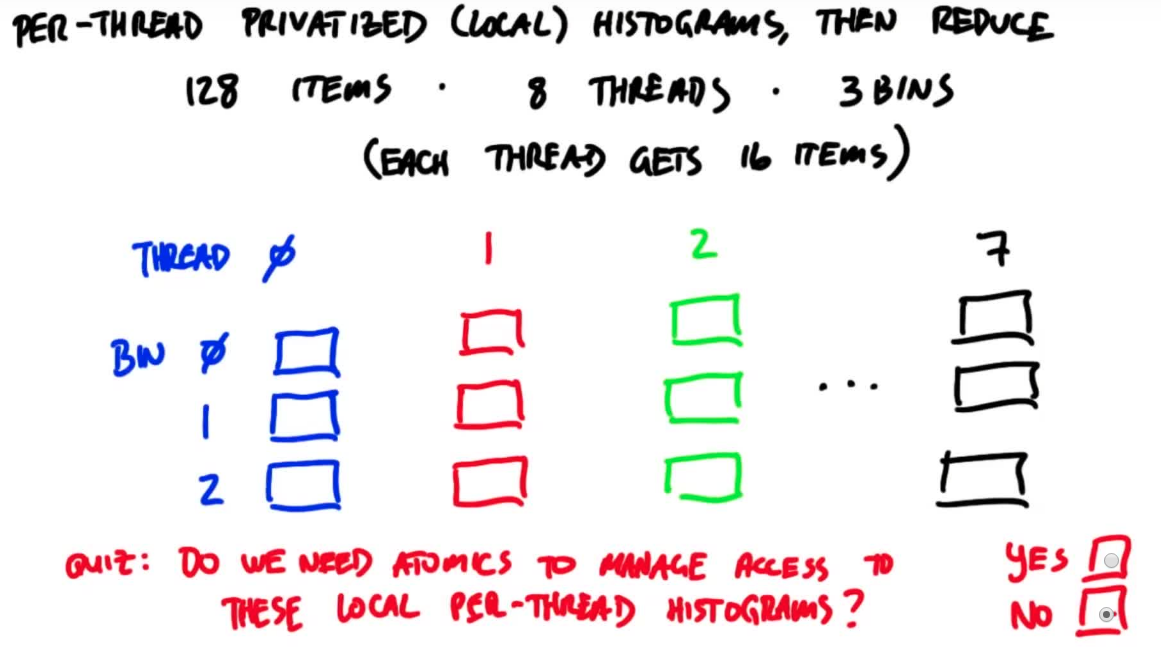 PER-THREAD PRIVATIZED (LOCAL) HISTOGRAMS, THEN REDUCE
128 ITEMS · 8 THREADS · 3 BINS
(EACH THREAD GETS 16 ITEMS)
THREAD Ø 1 2 7
BIN Ø
1 ...
2
QUIZ: DO WE NEED ATOMICS TO MANAGE ACCESS TO YES
THESE LOCAL PER-THREAD HISTOGRAMS? NO